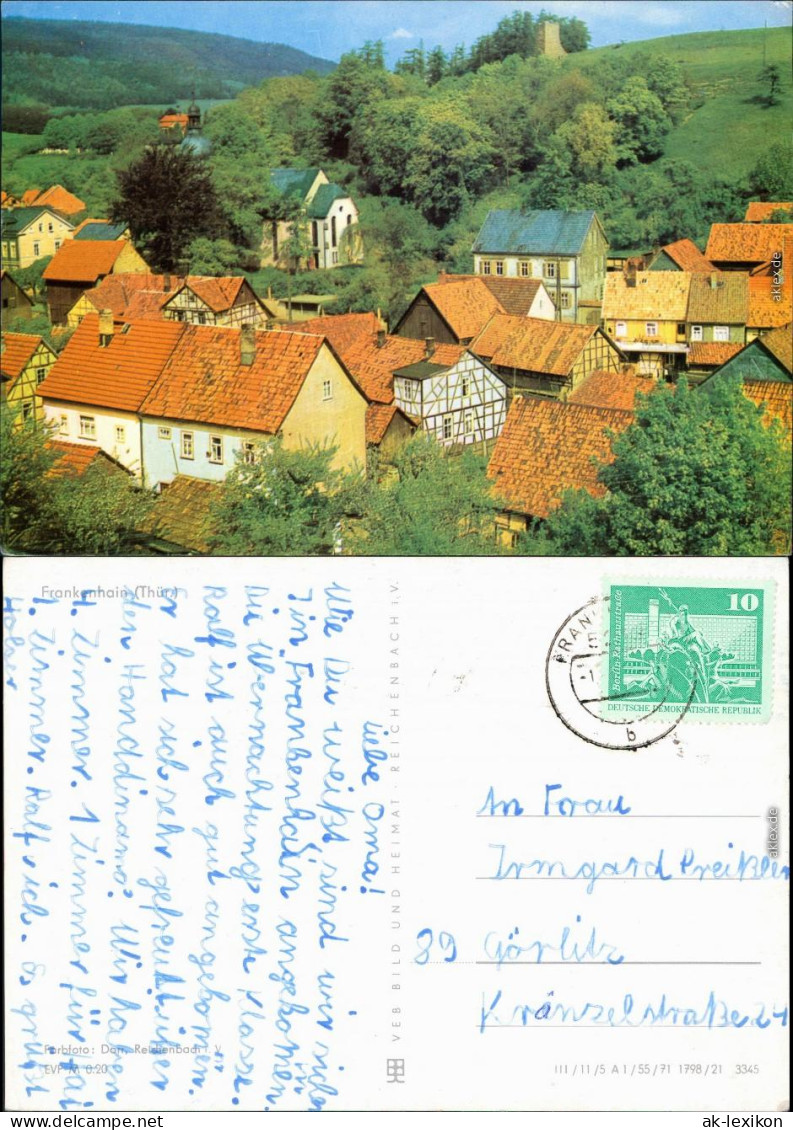 Frankenhain (Thür)
Liebe Oma!
Wie Du weißt sind wir
in Frankenhain angekommen.
Die Übernachtung erste Klasse.
Ralf ist auch gut angekommen.
Er hat sich sehr gefreut über
Wir haben
4. Zimmer. 1 Zimmer für
1. Zimmer. Ralf + ich. Es grüßt
Holar
Farbfoto: Dom, Reichenbach i. V.
EVP M 0.20
VEB BILD UND HEIMAT · REICHENBACH i. V.
10
Berlin-Rathausstraße
DEUTSCHE DEMOKRATISCHE REPUBLIK
FRAN
b
An Frau
Irmgard Preißler
89 Görlitz
Kränzelstraße 24
III/11/5 A 1/55/71 1798/21 3345
akiex.de
akiex.de
ak-lexikon
ak-lexikon.com